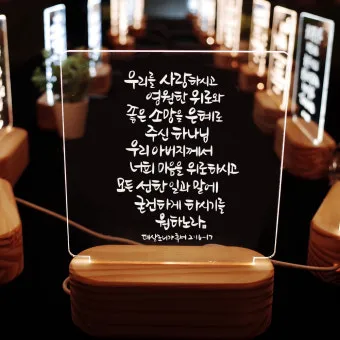 우리를 사랑하시고
영원한 위로와
좋은 소망을 은혜로
주신 하나님
우리 아버지께서
너희 마음을 위로하시고
모든 선한 일과 말에
굳건하게 하시기를
원하노라
데살로니가후서 2:16-17